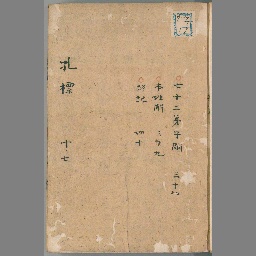 七十二弟子解 三十八
本姓解 三十九
終記 四十
孔標 十七